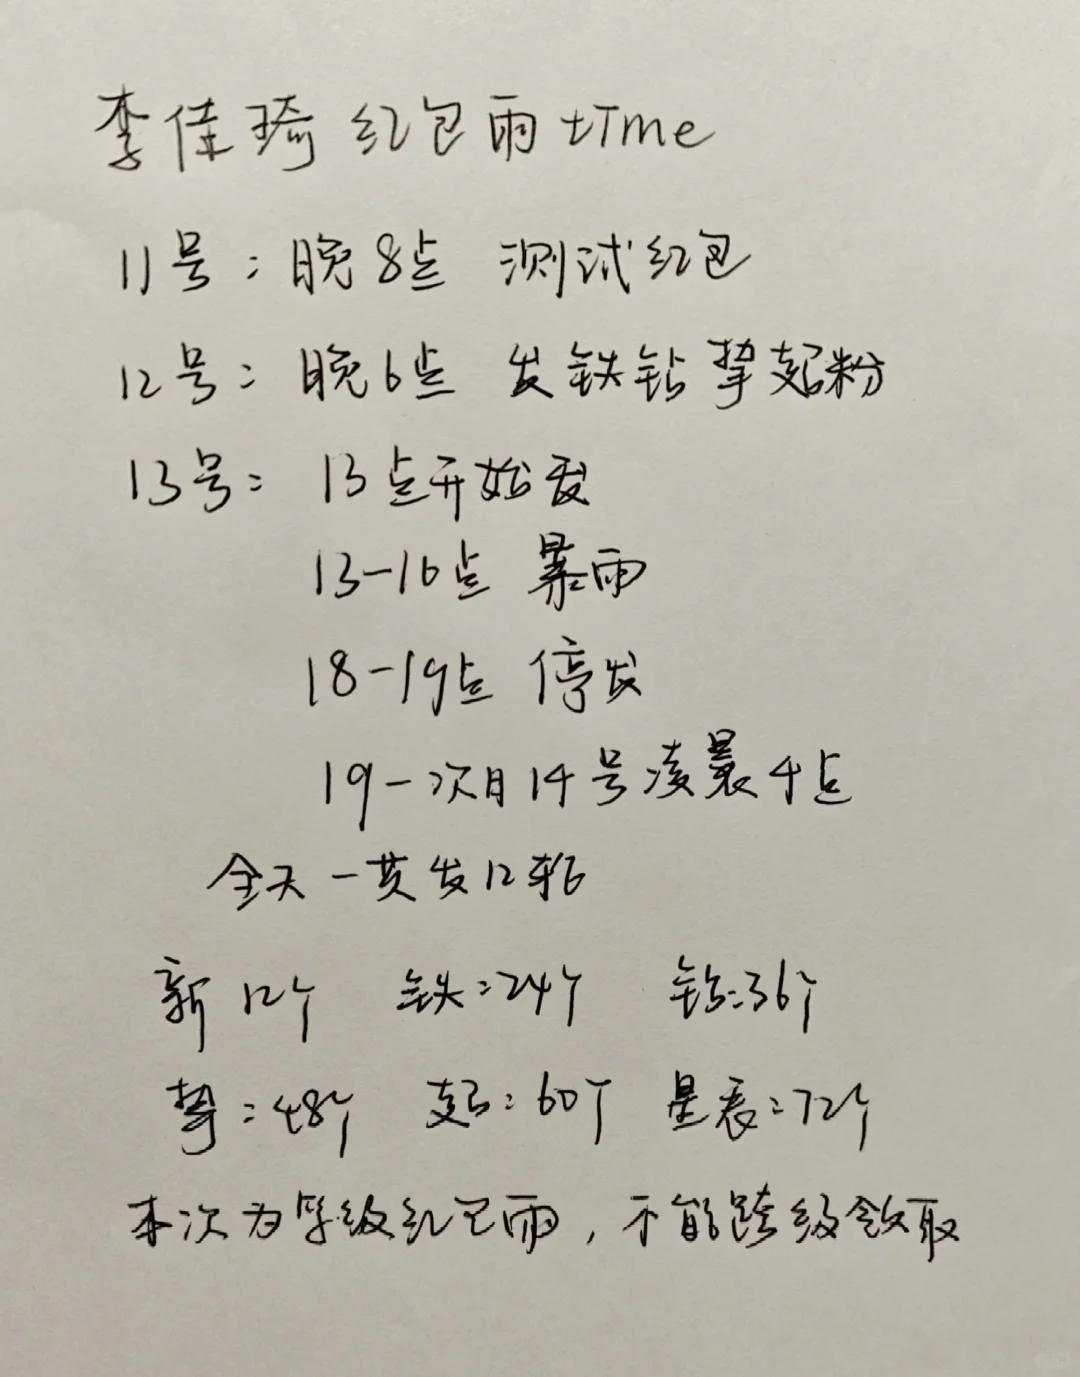 李佳琦红包雨tTme
11号：晚8点 测试红包
12号：晚6点 发铁钻挚超粉
13号：13点开始发
13-16点 暴雨
18-19点 停发
19-次日14号凌晨4点
全天一共发12轮
新12个 铁：24个 钻：36个
挚：48个 超：60个 星辰：72个
本次为等级红包雨，不能跨级领取